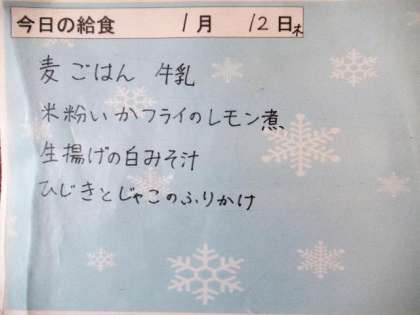 今日の給食 1月 12日木
麦ごはん 牛乳
米粉いかフライのレモン煮
生揚げの白みそ汁
ひじきとじゃこのふりかけ